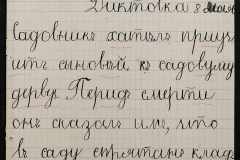 Диктовка 8 мая
Садовникъ хатълъ приуч
ить сыновьй, къ садовуму
дерву. Передъ смерти
онъ сказалъ имъ, что
въ саду спрятанъ клад